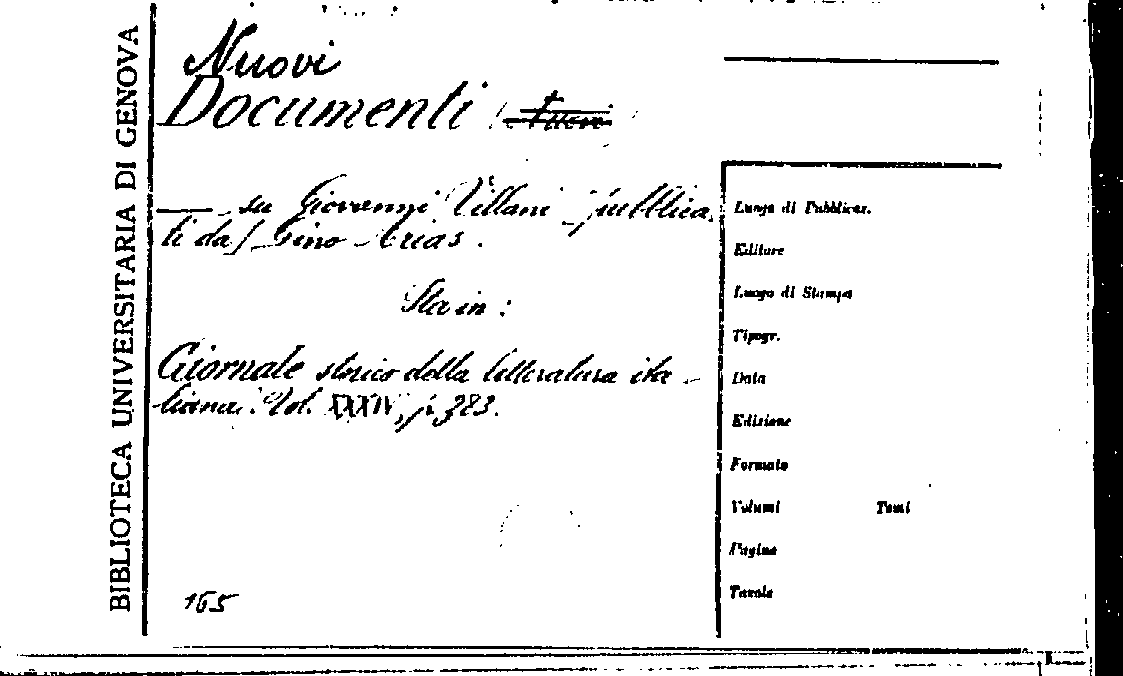 BIBLIOTECA UNIVERSITARIA DI GENOVA
Nuovi
Documenti (Nuovi)
— su Giovanni Villani pubblica-
ti da / Gino Arias.
Sta in:
Giornale storico della letteratura ita-
liana. Vol. XXXIV, p. 383.
165
Luogo di Pubblicaz.
Editore
Luogo di Stampa
Tipogr.
Data
Edizione
Formato
Volumi Tomi
Pagine
Tavole